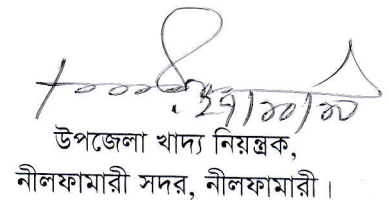 উপজেলা খাদ্য নিয়ন্ত্রক,
নীলফামারী সদর, নীলফামারী।